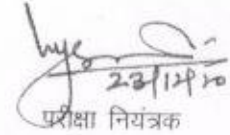 23/12/20
परीक्षा नियंत्रक